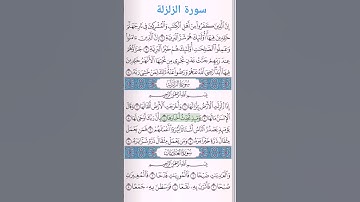 سورة الزلزلة
إِنَّ ٱلَّذِينَ كَفَرُوا۟ مِنْ أَهْلِ ٱلْكِتَٰبِ وَٱلْمُشْرِكِينَ فِى نَارِ جَهَنَّمَ
خَٰلِدِينَ فِيهَآ أُو۟لَٰٓئِكَ هُمْ شَرُّ ٱلْبَرِيَّةِ ٦ إِنَّ ٱلَّذِينَ ءَامَنُوا۟
وَعَمِلُوا۟ ٱلصَّٰلِحَٰتِ أُو۟لَٰٓئِكَ هُمْ خَيْرُ ٱلْبَرِيَّةِ ٧ جَزَآؤُهُمْ
عِندَ رَبِّهِمْ جَنَّٰتُ عَدْنٍ تَجْرِى مِن تَحْتِهَا ٱلْأَنْهَٰرُ خَٰلِدِينَ
فِيهَآ أَبَدًا رَّضِىَ ٱللَّهُ عَنْهُمْ وَرَضُوا۟ عَنْهُ ذَٰلِكَ لِمَنْ خَشِىَ رَبَّهُۥ ٨
سُورَةُ الزَّلْزَلَةِ
بِسْمِ ٱللَّهِ ٱلرَّحْمَٰنِ ٱلرَّحِيمِ
إِذَا زُلْزِلَتِ ٱلْأَرْضُ زِلْزَالَهَا ١ وَأَخْرَجَتِ ٱلْأَرْضُ أَثْقَالَهَا ٢ وَقَالَ
ٱلْإِنسَٰنُ مَا لَهَا ٣ يَوْمَئِذٍ تُحَدِّثُ أَخْبَارَهَا ٤ بِأَنَّ رَبَّكَ أَوْحَىٰ لَهَا ٥
يَوْمَئِذٍ يَصْدُرُ ٱلنَّاسُ أَشْتَاتًا لِّيُرَوْا۟ أَعْمَٰلَهُمْ ٦ فَمَن يَعْمَلْ
مِثْقَالَ ذَرَّةٍ خَيْرًا يَرَهُۥ ٧ وَمَن يَعْمَلْ مِثْقَالَ ذَرَّةٍ شَرًّا يَرَهُۥ ٨
سُورَةُ العَادِيَاتِ
بِسْمِ ٱللَّهِ ٱلرَّحْمَٰنِ ٱلرَّحِيمِ
وَٱلْعَٰدِيَٰتِ ضَبْحًا ١ فَٱلْمُورِيَٰتِ قَدْحًا ٢ فَٱلْمُغِيرَٰتِ
صُبْحًا ٣ فَأَثَرْنَ بِهِۦ نَقْعًا ٤ فَوَسَطْنَ بِهِۦ جَمْعًا ٥